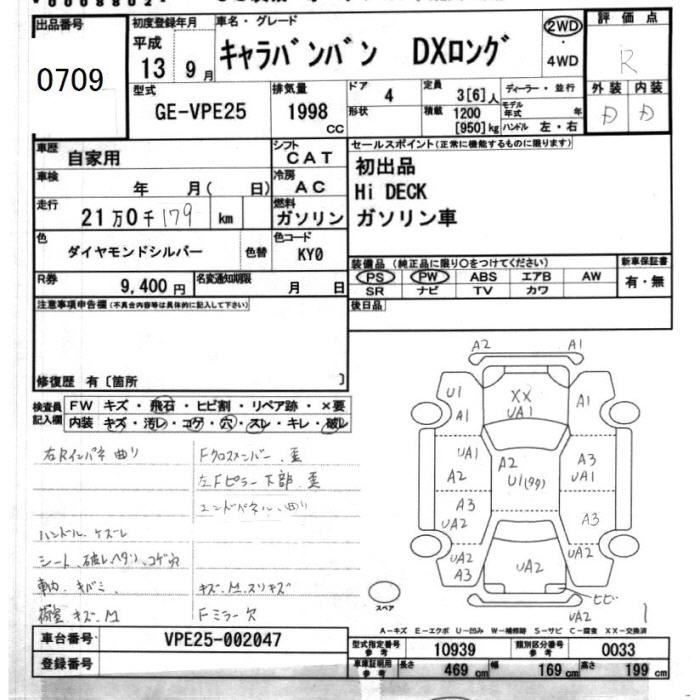 出品番号
0709
初度登録年月
平成
13 9月
車名・グレード
キャラバンバン DXロング
2WD
・
4WD
評価点
R
型式
GE-VPE25
排気量
1998
CC
ドア 4
形状
定員 3[6]人
積載 1200
[950]kg
ディーラー・並行
モデル年式 年
ハンドル 左・右
外装 内装
D D
車歴
自家用
シフト
CAT
車検
年 月( 日)
冷房
AC
走行
21万0千179 km
燃料
ガソリン
色
ダイヤモンドシルバー
色替
色コード
KY0
R券
9,400円
名変通知期限
月 日
セールスポイント(正常に機能するものに限ります)
初出品
Hi DECK
ガソリン車
装備品(純正品に限り○をつけてください)
PS PW ABS エアB AW
SR ナビ TV カワ
新車保証書
有・無
後日品
注意事項申告欄(不具合内容等は具体的に記入して下さい)
修復歴 有〔箇所 〕
検査員
記入欄
FW キズ・飛石・ヒビ割・リペア跡・×要
内装 キズ・汚レ・コゲ・穴・スレ・キレ・破レ
右Rインパネ曲り
Fクロスメンバー歪
左Fピラー下部歪
エンドパネル曲り
ハンドル、ケズレ
シート、破レヘタリ、コゲ穴
車内、キバミ
荷室キズ、M
キズ、M、スリキズ
Fミラー欠
A2 A1
U1
A1
XX
UA1
A1
UA1
A2
A2
U1(99)
A3
UA1
A3
UA2
A3
UA2
A3
UA2
UA2
ヒビ
UA2
1
スペア
A-キズ E-エクボ U-凹み W-補修跡 S-サビ C-腐食 XX-交換済
車台番号
VPE25-002047
登録番号
型式指定番号
参考
10939
類別区分番号
参考
0033
車庫証明用
参考
長さ 469 cm
幅 169 cm
高さ 199 cm